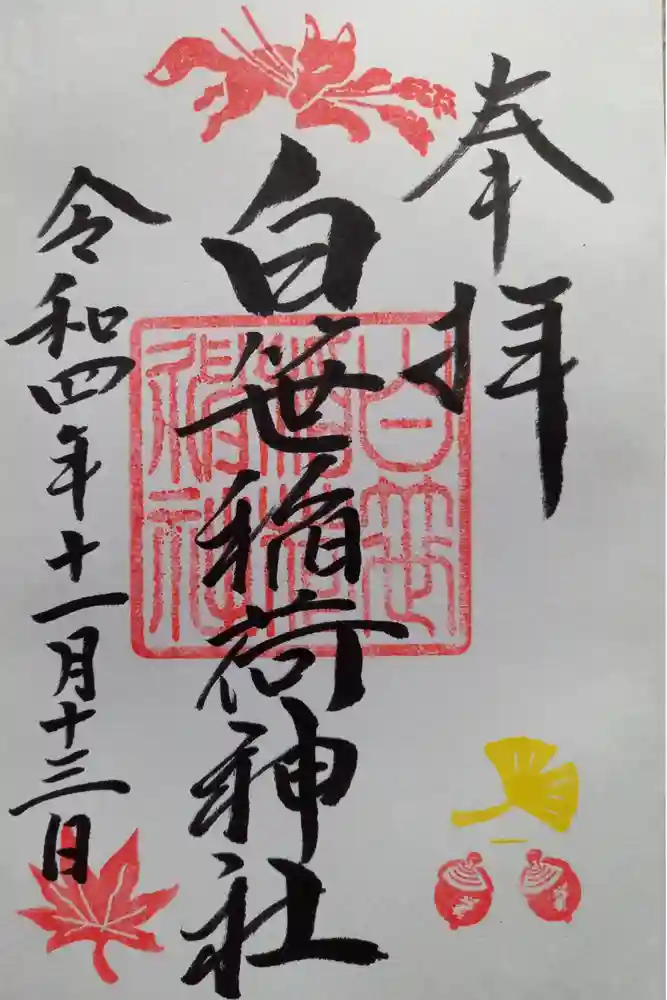 奉拝
白笹稲荷神社
白笹
稲荷
神社
令和四年十一月十三日